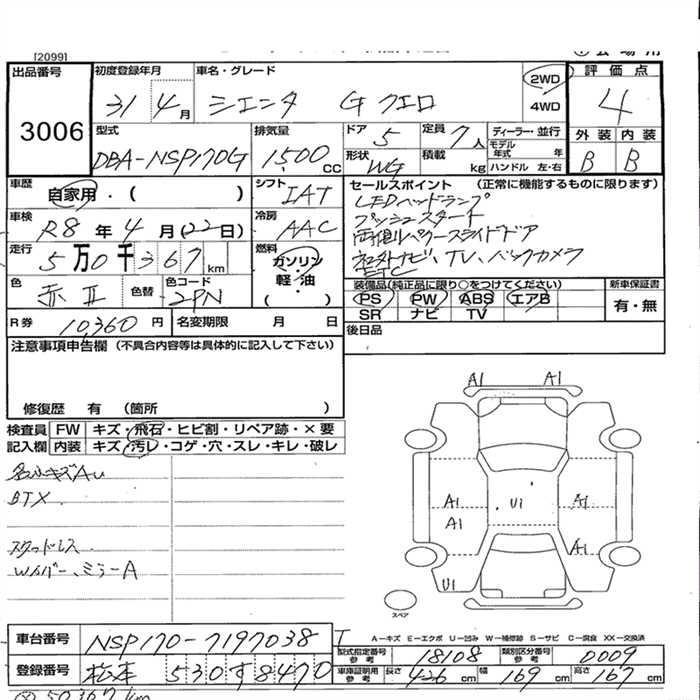 [2099]
出品番号
3006
初度登録年月
31 4月
車名・グレード
シエンタ G クエロ
2WD
4WD
評価点
4
外装 内装
B B
型式
DBA-NSP170G
排気量
1500 CC
ドア 5
定員 7人
ディーラー・並行
モデル年式 年
形状 WG
積載 kg
ハンドル 左・右
車歴
自家用・( )
シフト IAT
セールスポイント (正常に機能するものに限ります)
LEDヘッドランプ
プッシュスタート
両側パワースライドドア
社外ナビ、TV、バックカメラ
ETC
車検
R8年4月(22日)
冷房 AAC
走行
5万0千367km
燃料
ガソリン・
軽・油
色
赤II
色替
色コード
2PN
装備品(純正品に限り○をつけてください)
PS PW ABS エアB
SR ナビ TV
新車保証書
有・無
R券 10,360円
名変期限 月 日
後日品
注意事項申告欄 (不具合内容等は具体的に記入して下さい)
修復歴 有 (箇所 )
検査員記入欄
FW キズ・飛石・ヒビ割・リペア跡・×要
内装 キズ・汚レ・コゲ・穴・スレ・キレ・破レ
各小キズAu
BTX.
スタッドレス.
Wイパー、ミラーA
A1 A1
A1 U1 A1
A1
A1
U1
スペア
A-キズ E-エクボ U-凹み W-補修跡 S-サビ C-腐食 XX-交換済
車台番号 NSP170-7197038
型式指定番号 参考 18108
類別区分番号 参考 0009
登録番号 松本 530す8470
車庫証明用 参考 長さ 426cm 幅 169cm 高さ 167cm
50367km